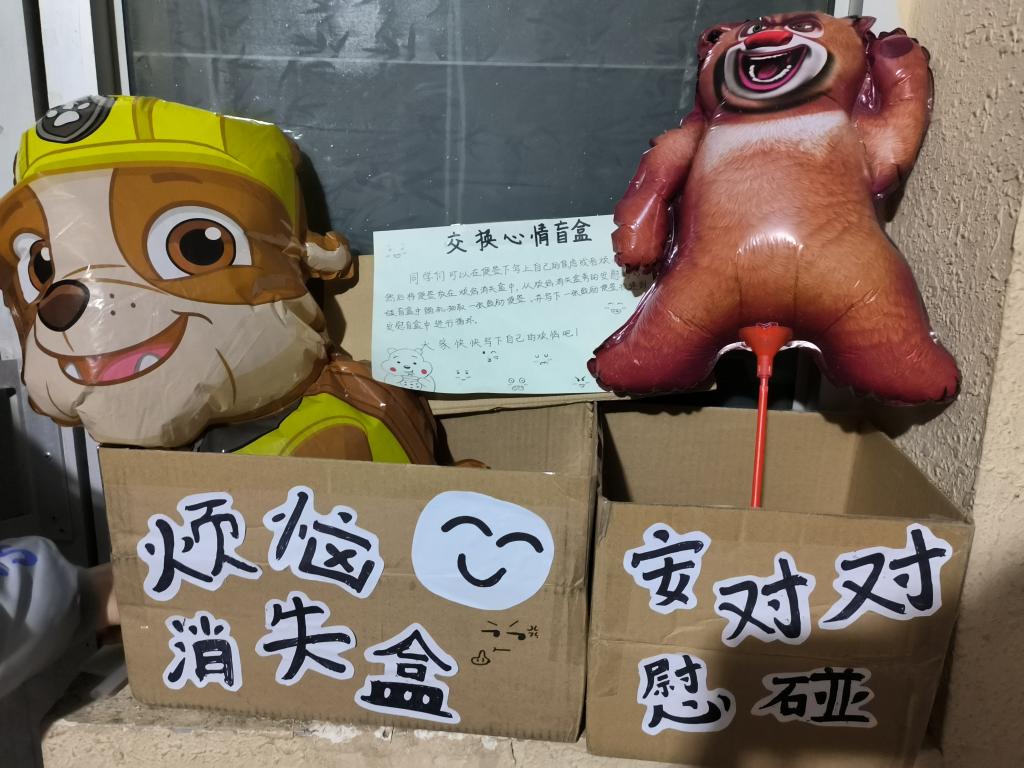 交换心情盲盒
同学们可以在便签下写上自己的焦虑或者烦
然后将便签放在烦恼消失盒中，从烦恼消失盒旁的安慰
盲盒中随机抽取一张鼓励便签，并写下一张鼓励便签
安慰盲盒中进行循环。
大家快快写下自己的烦恼吧！
烦恼
消失盒
安对对
慰碰